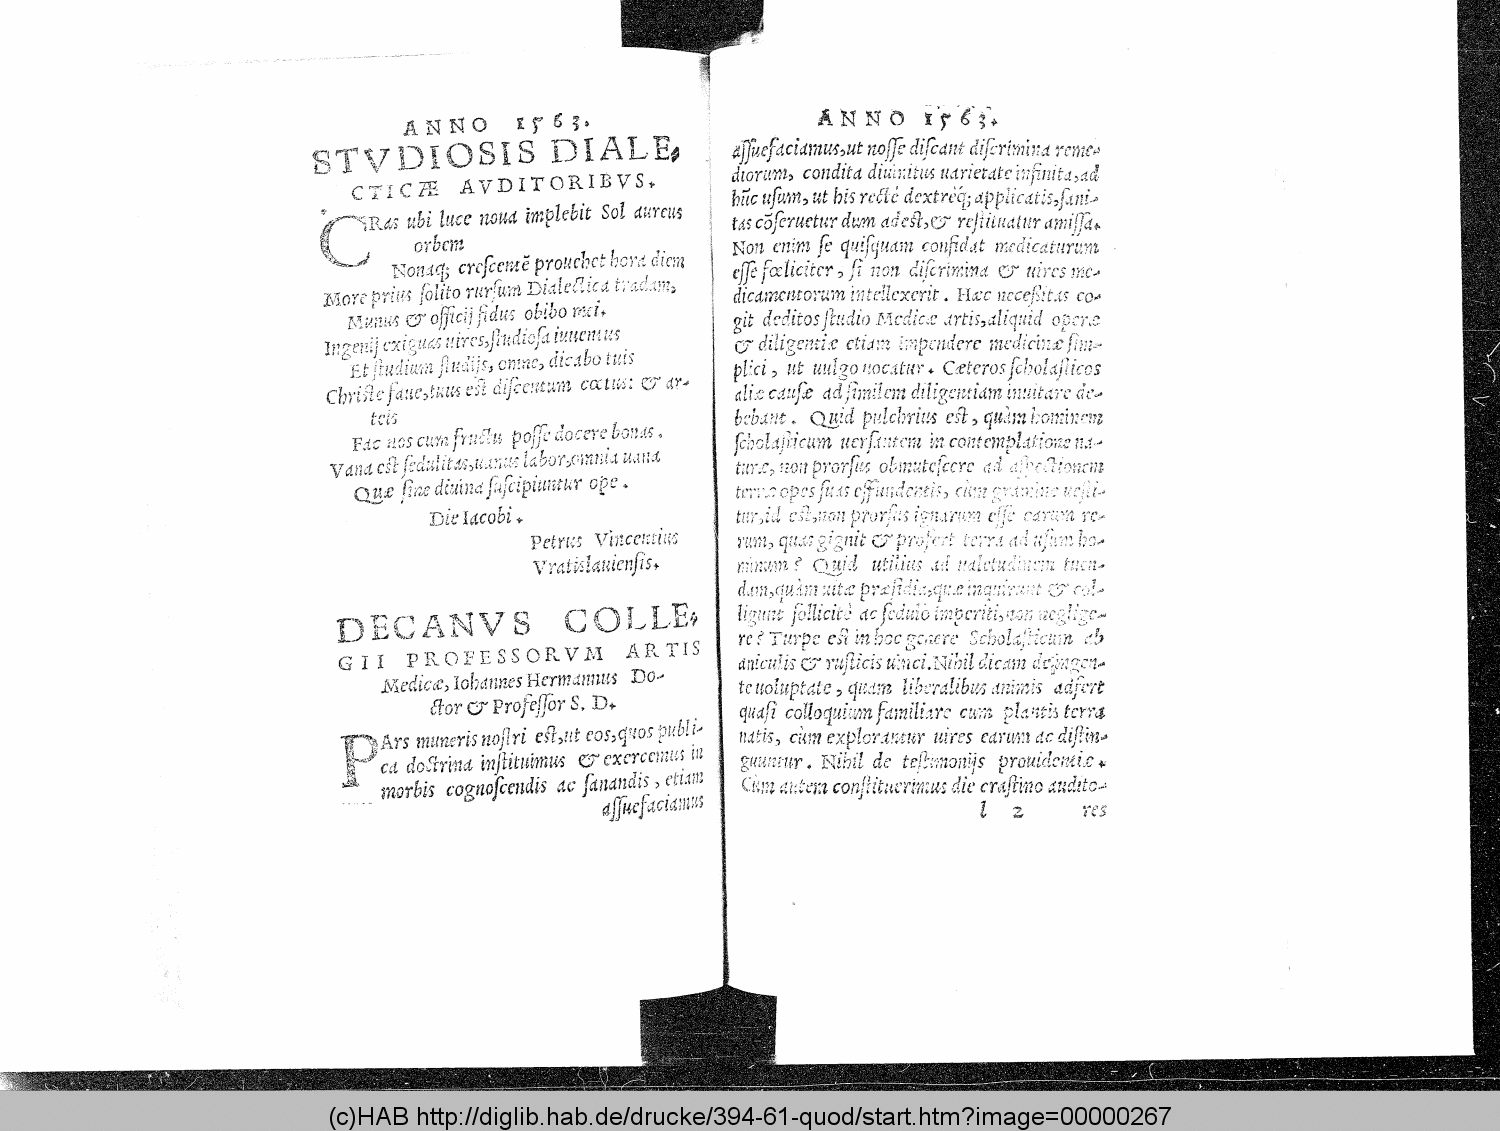 ANNO 1563.
STVDIOSIS DIALE,
CTICÆ AVDITORIBVS.
CRas ubi luce noua implebit Sol aureus
orbem
Nonaq; crescentē prouehet hora diem
More prius solito rursum Dialectica tradam,
Munus & officij fidus obibo mei.
Ingenij exiguas uires, studiosa iuuentus
Et studium studijs, omne, dicabo tuis
Christe faue, tuus est discentum cœtus: & ar-
teis
Fac nos cum fructu posse docere bonas.
Vana est sedulitas, uanus labor, omnia uana
Quæ sine diuina suscipiuntur ope.
Die Iacobi.
Petrus Vincentius
Vratislauiensis.
DECANVS COLLE,
GII PROFESSORVM ARTIS
Medicæ, Iohannes Hermannus Do-
ctor & Professor S. D.
PArs muneris nostri est, ut eos, quos publi-
ca doctrina instituimus & exercemus in
morbis cognoscendis ac sanandis, etiam
assuefaciamus
ANNO 1563.
assuefaciamus, ut nosse discant discrimina reme-
diorum, condita diuinitus uarietate infinita, ad
hūc usum, ut his rectè dextreq́; applicatis, sani-
tas cōseruetur dum adest, & restituatur amissa.
Non enim se quisquam confidat medicaturum
esse fœliciter, si non discrimina & uires me-
dicamentorum intellexerit. Hæc necessitas co-
git deditos studio Medicæ artis, aliquid operæ
& diligentiæ etiam impendere medicinæ sim-
plici, ut uulgo uocatur. Cæteros scholasticos
aliæ causæ ad similem diligentiam inuitare de-
bebant. Quid pulchrius est, quàm hominem
scholasticum uersantem in contemplatione na-
turæ, non prorsus obmutescere ad aspectionem
terræ opes suas effundentis, cùm gramine uesti-
tur, id est, non prorsus ignarum esse earum re-
rum, quas gignit & profert terra ad usum ho-
minum? Quid utilius ad ualetudinem tuen-
dam, quàm uitæ præsidia, quæ inquirunt & col-
ligunt sollicitè ac sedulo imperiti, non neglige-
re? Turpe est in hoc genere Scholasticum ab
aniculis & rusticis uinci. Nihil dicam de ingen-
te uoluptate, quam liberalibus animis adfert
quasi colloquium familiare cum plantis terra
natis, cùm explorantur uires earum ac distin-
guuntur. Nihil de testimonijs prouidentiæ.
Cùm autem constituerimus die crastino audito-
l 2 res
(c)HAB http://diglib.hab.de/drucke/394-61-quod/start.htm?image=00000267